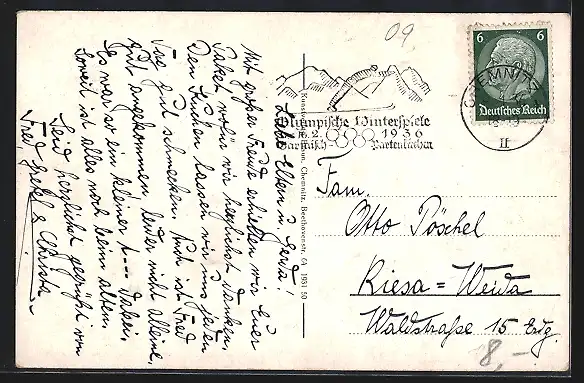 Liebe Eltern u. Gerda!
Mit großer Freude erhielten wir Euer
Paket wofür wir herzlichst danken.
Den Kuchen lassen wir uns jeden
Tag gut schmecken. Auch ist Fred
gut angekommen, leider nicht alleine,
Es war so ein kleiner t--- dabei.
Soweit ist alles noch beim alten.
Seid herzlichst gegrüßt von
Fred, &
Chemnitz, Beethovenstr. 64 1931 50
09
Olympische Winterspiele
16.2. 1936
Garmisch- Partenkirchen
CHEMNITZ
II
6 6
Deutsches Reich
Fam.
Otto Pöschel
Riesa = Weida
Waldstraße 15 Erdg.
8,-